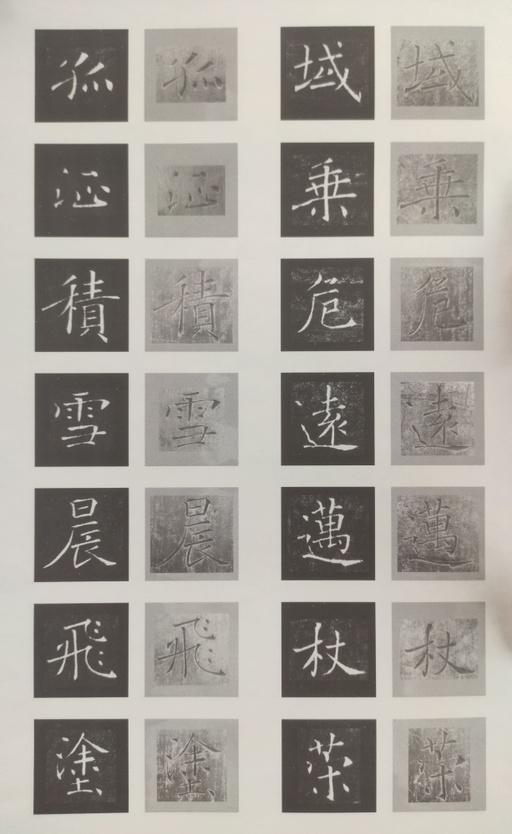 域乗危遠邁杖策
域乗危遠邁杖策
孤征積雪晨飛塗
孤征積雪晨飛塗